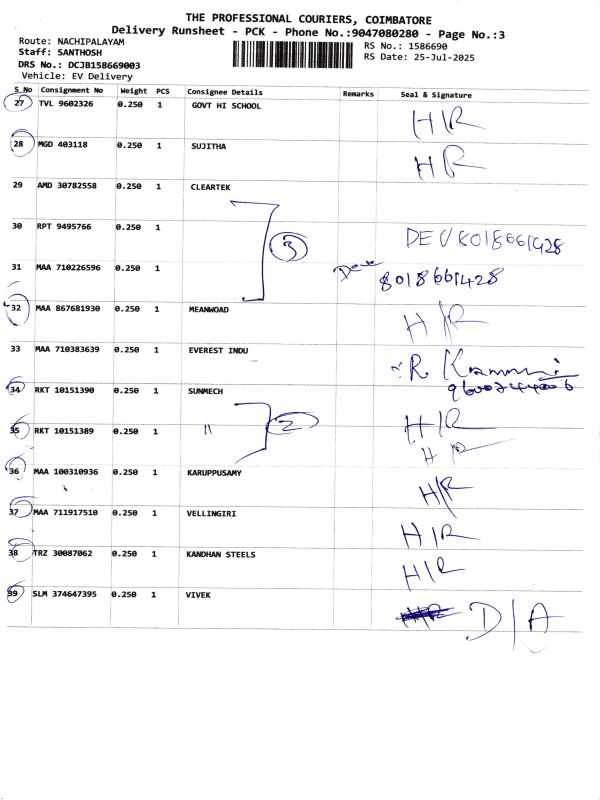 THE PROFESSIONAL COURIERS, COIMBATORE
Delivery Runsheet - PCK - Phone No.:9047080280 - Page No.:3
Route: NACHIPALAYAM
RS No.: 1586690
Staff: SANTHOSH
RS Date: 25-Jul-2025
DRS No.: DCJB158669003
Vehicle: EV Delivery
S No Consignment No Weight PCS Consignee Details Remarks Seal & Signature
27 TVL 9602326 0.250 1 GOVT HI SCHOOL H/R
28 MGD 403118 0.250 1 SUJITHA H/R
29 AMD 30782558 0.250 1 CLEARTEK
3
30 RPT 9495766 0.250 1 DEV 8018661428
31 MAA 710226596 0.250 1 8018661428
32 MAA 867681930 0.250 1 MEANWOAD H/R
33 MAA 710383639 0.250 1 EVEREST INDU
34 RKT 10151390 0.250 1 SUNMECH H/R
2
35 RKT 10151389 0.250 1 " H/R
36 MAA 100310936 0.250 1 KARUPPUSAMY H/R
37 MAA 711917510 0.250 1 VELLINGIRI H/R
38 TRZ 30087062 0.250 1 KANDHAN STEELS H/R
39 SLM 374647395 0.250 1 VIVEK D/A